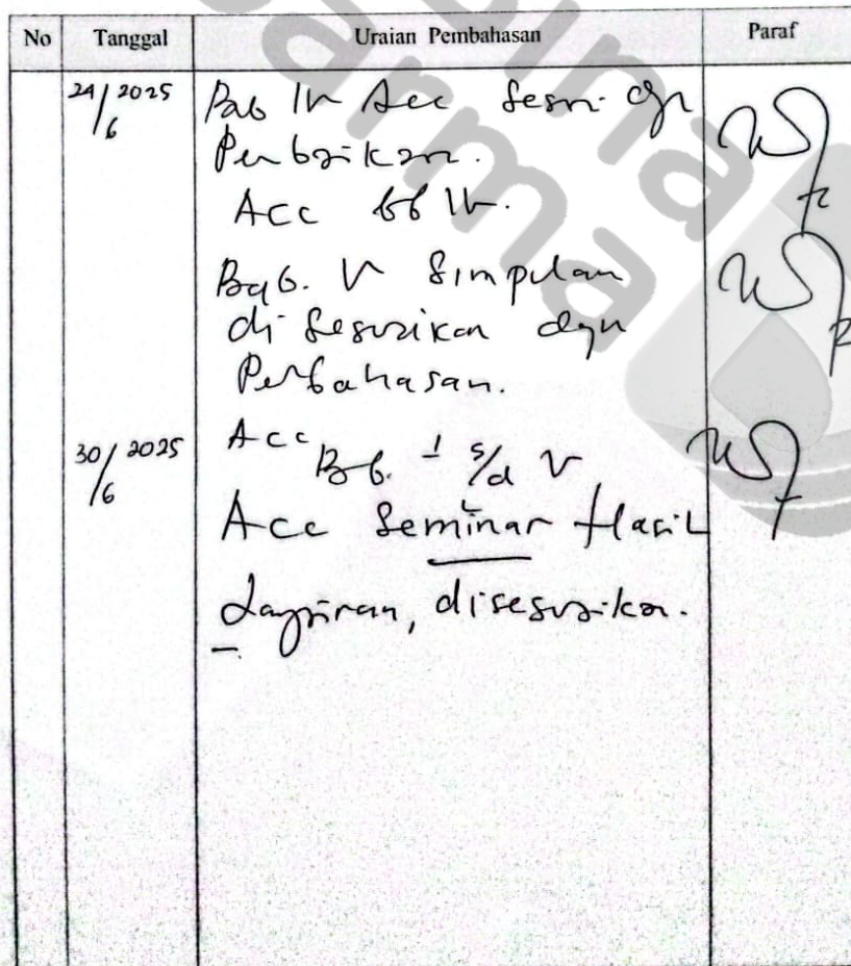 No Tanggal Uraian Pembahasan Paraf
24/6 2025 Bab IV Acc sesuai dgn
Perbaikan.
Acc bb IV.
Bab. V Simpulan
disesuaikan dgn
Pembahasan.
30/6 2025 Acc Bab. I s/d V
Acc Seminar Hasil
Lampiran, disesuaikan.
bina
arma